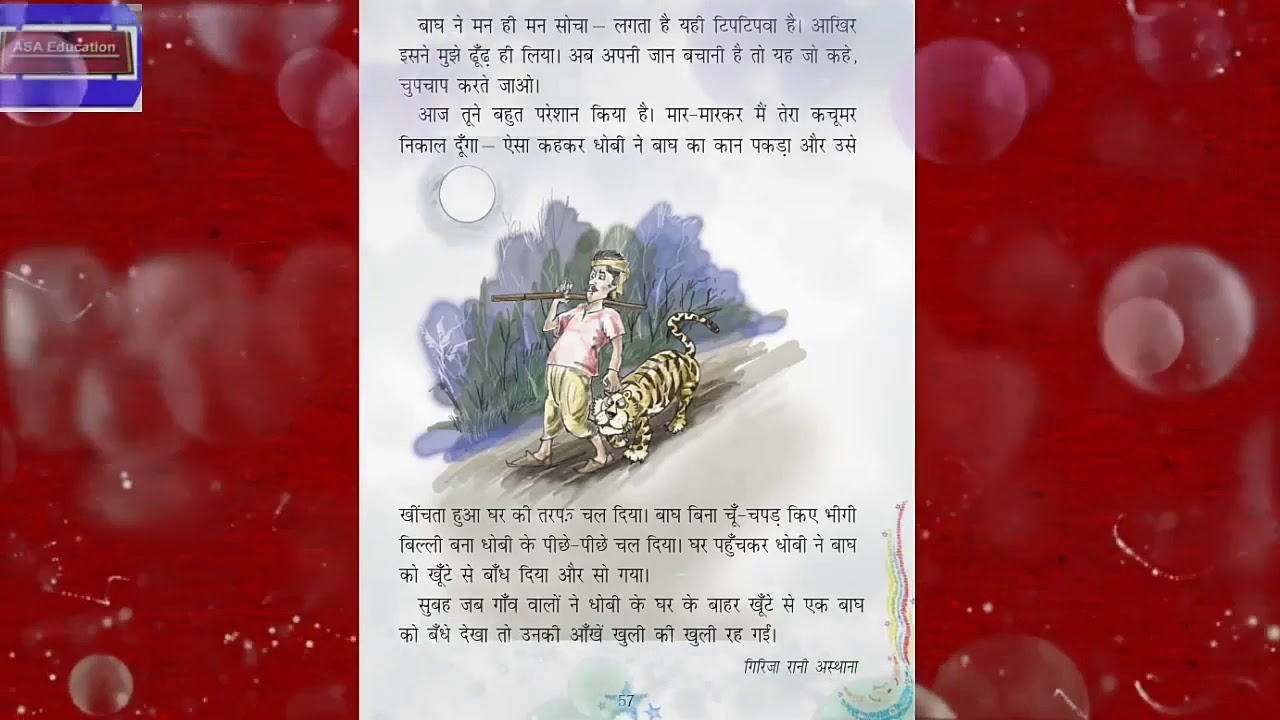 ASA Education
बाघ ने मन ही मन सोचा – लगता है यही टिपटिपवा है। आखिर
इसने मुझे ढूँढ़ ही लिया। अब अपनी जान बचानी है तो यह जो कहे,
चुपचाप करते जाओ।
आज तूने बहुत परेशान किया है। मार-मारकर मैं तेरा कचूमर
निकाल दूँगा – ऐसा कहकर धोबी ने बाघ का कान पकड़ा और उसे
खींचता हुआ घर की तरफ चल दिया। बाघ बिना चूँ-चपड़ किए भीगी
बिल्ली बना धोबी के पीछे-पीछे चल दिया। घर पहुँचकर धोबी ने बाघ
को खूँटे से बाँध दिया और सो गया।
सुबह जब गाँव वालों ने धोबी के घर के बाहर खूँटे से एक बाघ
को बँधे देखा तो उनकी आँखें खुली की खुली रह गईं।
गिरिजा रानी अस्थाना
57